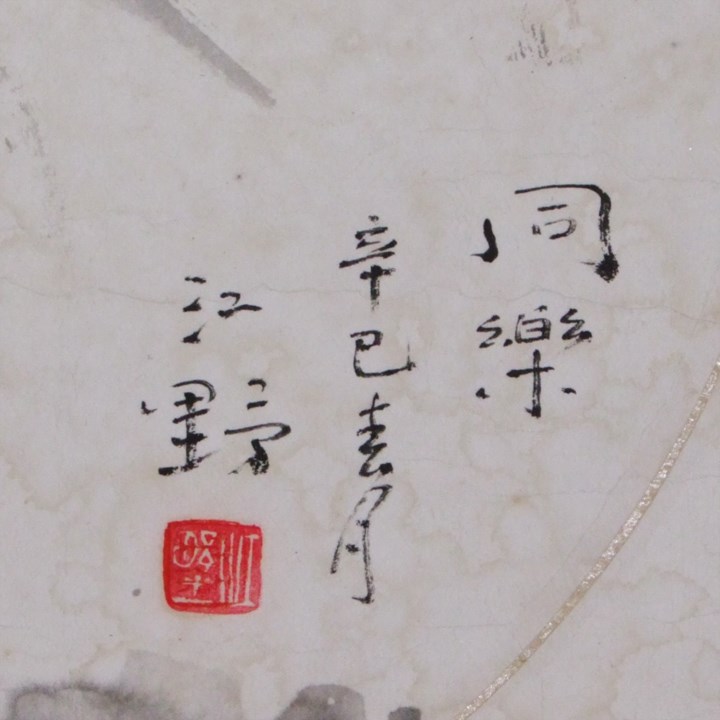 同樂
辛巳春月
江野